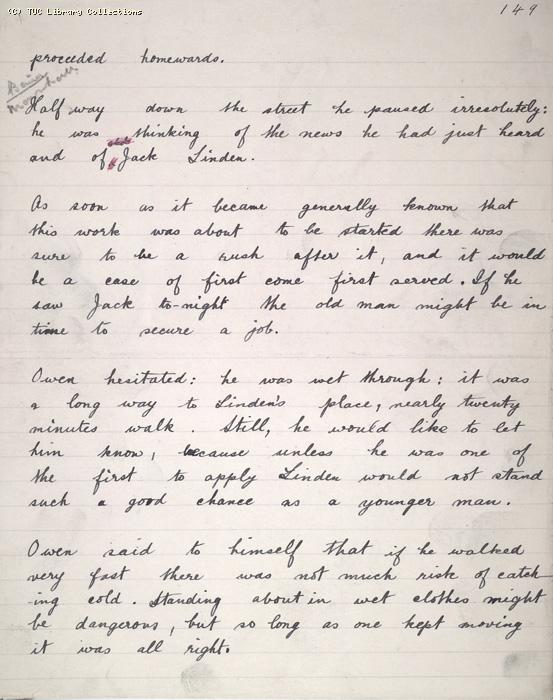 (C) TUC Library Collections
149
proceeded homewards.
Half way down the street he paused irresolutely:
he was thinking of the news he had just heard
and of old Jack Linden.
As soon as it became generally known that
this work was about to be started there was
sure to be a rush after it, and it would
be a case of first come first served. If he
saw Jack to-night the old man might be in
time to secure a job.
Owen hesitated: he was wet through: it was
a long way to Linden's place, nearly twenty
minutes walk. Still, he would like to let
him know, because unless he was one of
the first to apply Linden would not stand
such a good chance as a younger man.
Owen said to himself that if he walked
very fast there was not much risk of catch
-ing cold. Standing about in wet clothes might
be dangerous, but so long as one kept moving
it was all right.